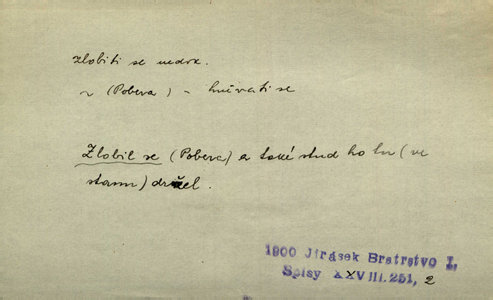 zlobiti se nedok.
~ (Pobera) – hněvati se
Zlobil se (Pobera) a také stud ho tu (ve
stanu) držel.
1900 Jirásek Bratrstvo I.
Spisy XXVIII.251, 2